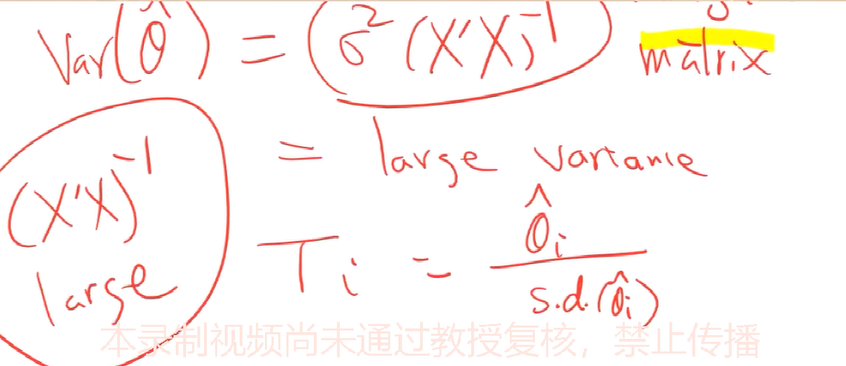 Var(θ̂) = σ²(X'X)⁻¹ matrix
(X'X)⁻¹ = large variance
large Tᵢ = θ̂ᵢ / s.d.(θ̂ᵢ)
本录制视频尚未通过教授复核，禁止传播